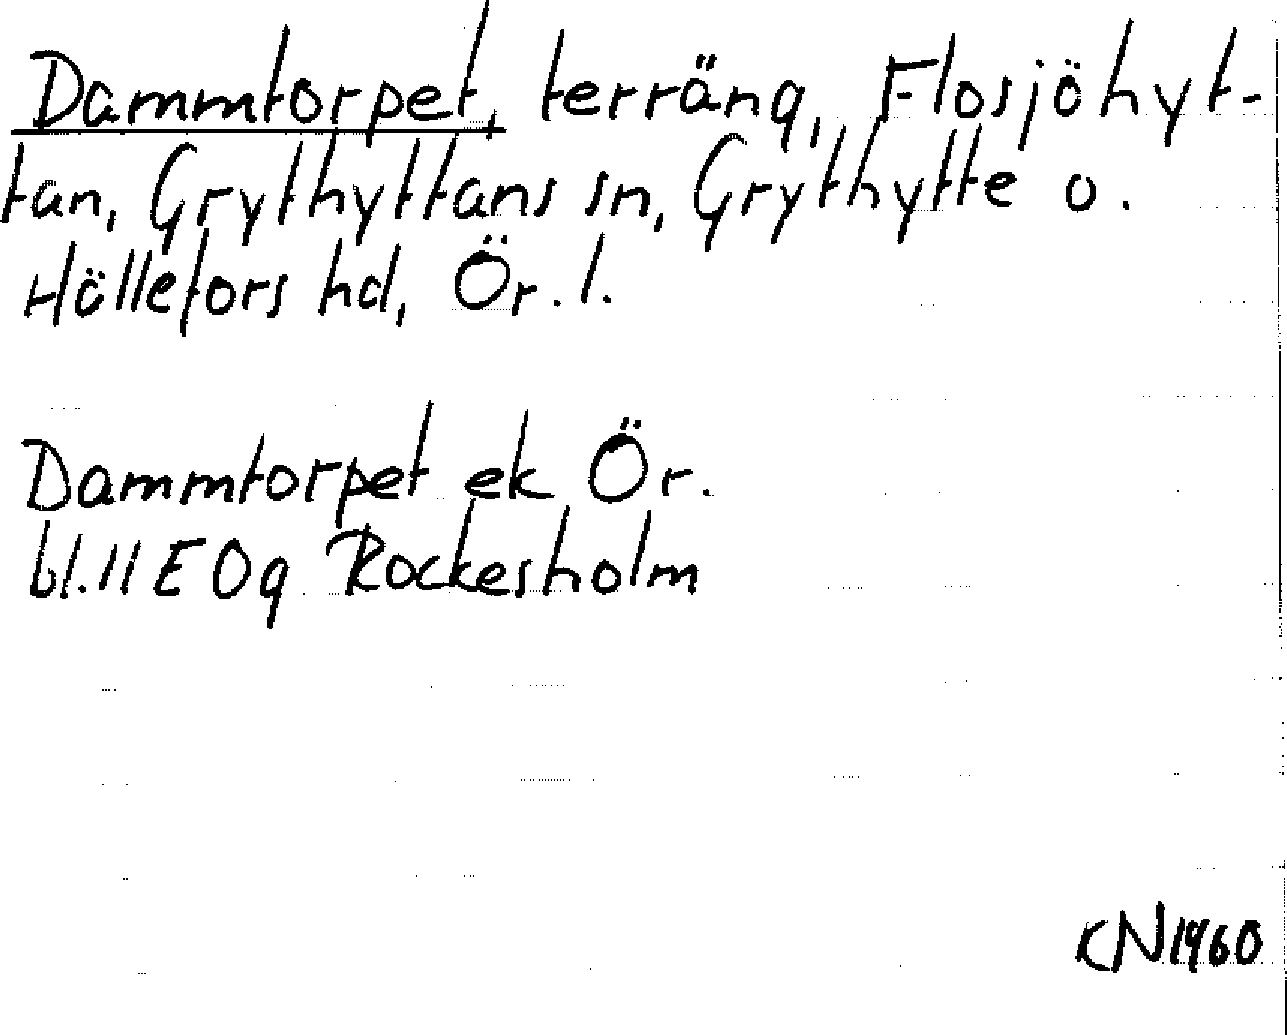 Dammtorpet, terräng, Flosjöhyt-
tan, Grythyttans sn, Grythytte o.
Hällefors hd, Ör. l.
Dammtorpet ek Ör.
bl. 11 E 0g Rockesholm
CN 1960